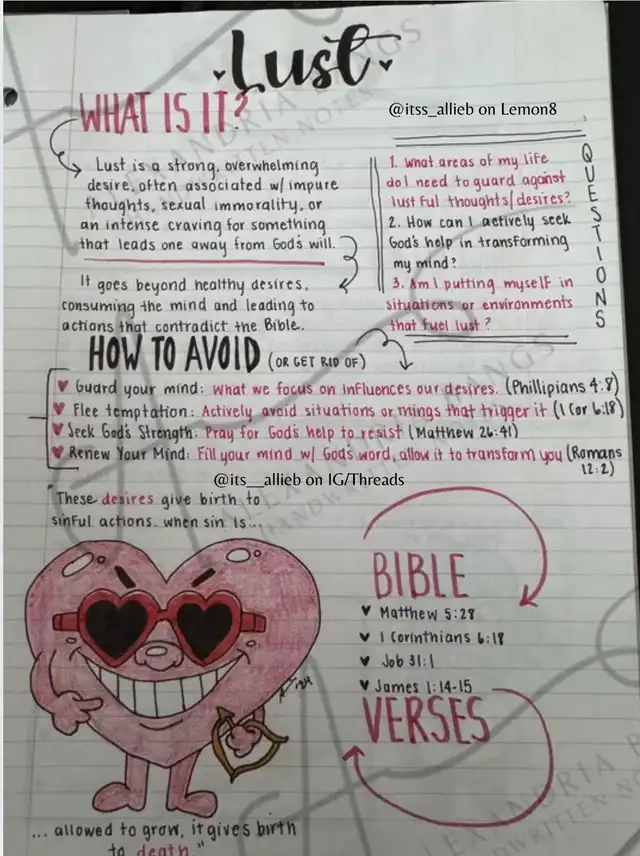 Lust
WHAT IS IT?
@itss_allieb on Lemon8
Lust is a strong, overwhelming
desire, often associated w/ impure
thoughts, sexual immorality, or
an intense craving for something
that leads one away from God's will.
It goes beyond healthy desires,
consuming the mind and leading to
actions that contradict the Bible.
QUESTIONS
1. What areas of my life
do I need to guard against
lustful thoughts/desires?
2. How can I actively seek
God's help in transforming
my mind?
3. Am I putting myself in
situations or environments
that fuel lust?
HOW TO AVOID (OR GET RID OF)
Guard your mind: What we focus on influences our desires. (Phillipians 4:8)
Flee temptation: Actively avoid situations or things that trigger it (1 Cor 6:18)
Seek God's Strength: Pray for God's help to resist (Matthew 26:41)
Renew Your Mind: Fill your mind w/ God's word, allow it to transform you (Romans
12:2)
@its__allieb on IG/Threads
"These desires give birth to
sinful actions. when sin is...
BIBLE
Matthew 5:28
1 Corinthians 6:18
Job 31:1
James 1:14-15
VERSES
... allowed to grow, it gives birth
to death"
ALEXANDRIA
HANDWRITTEN NOTES